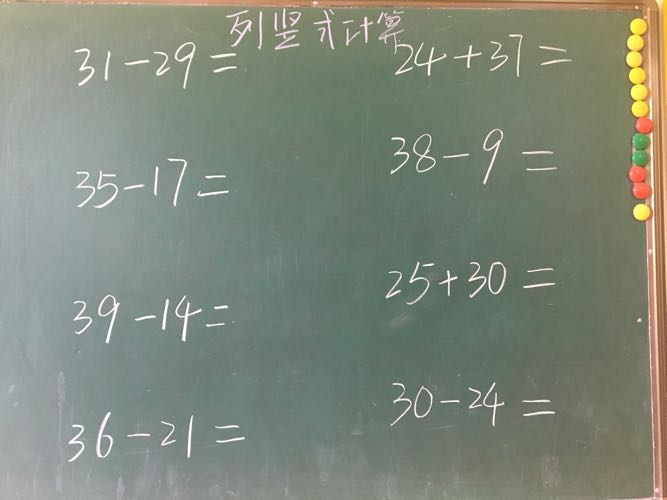 列竖式计算
31-29=
24+37=
35-17=
38-9=
39-14=
25+30=
36-21=
30-24=